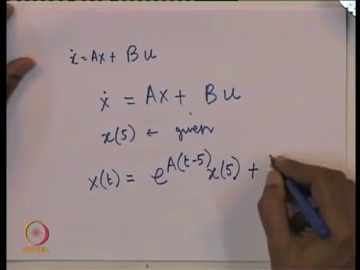 ẋ = Ax + Bu
ẋ = Ax + Bu
x(5) ← given
x(t) = e^{A(t-5)} x(5) +
NPTEL